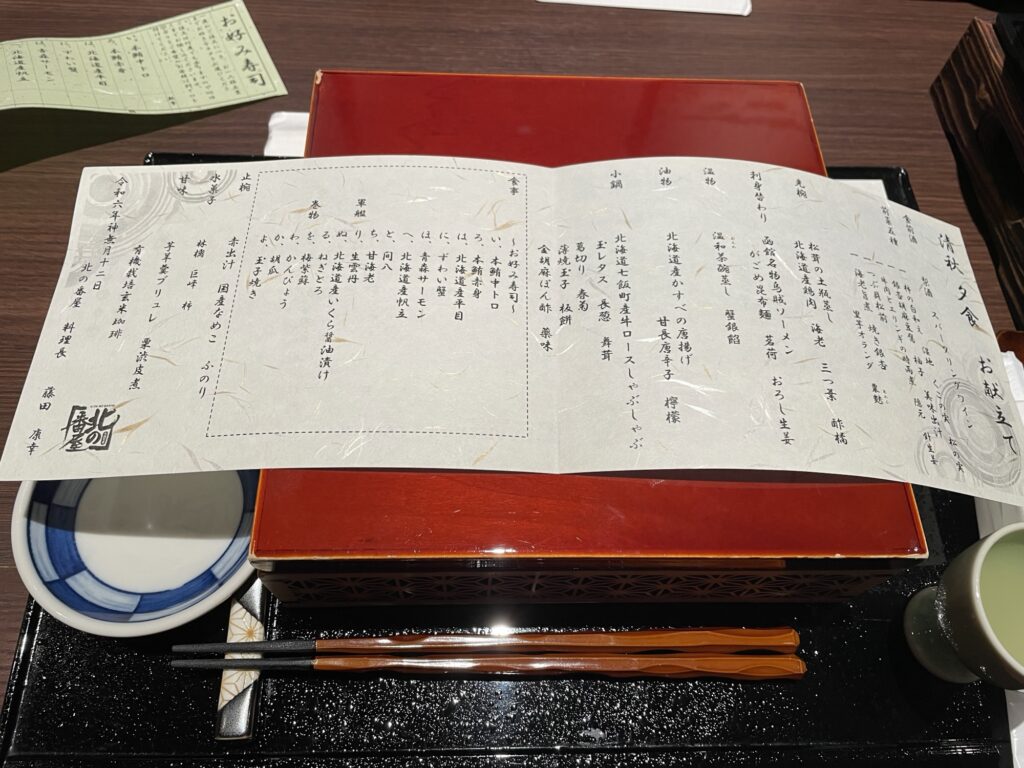 清秋 夕食 お献立て
食前酒
原酒 スパークリングワイン
前菜五種
先椀
松茸の土瓶蒸し 海老 三つ葉 酢橘
北海道産鶏肉
刺身替わり
函館名物烏賊ソーメン 茗荷 おろし生姜
がごめ昆布麺
温物
温和茶碗蒸し 蟹銀餡
油物
北海道産かすべの唐揚げ 甘長唐辛子 檸檬
小鍋
北海道七飯町産牛ロースしゃぶしゃぶ
玉レタス 長葱 舞茸
葛切り 春菊
薄焼玉子 板餅
金胡麻ぽん酢 薬味
食事
～お好み寿司～
い、本鮪中トロ
ろ、本鮪赤身
は、北海道産平目
に、ずわい蟹
ほ、青森サーモン
へ、北海道産帆立
と、間八
ち、甘海老
軍艦
り、生雲丹
ぬ、北海道産いくら醤油漬け
る、ねぎとろ
巻物
を、梅紫蘇
わ、かんぴょう
か、胡瓜
よ、玉子焼き
止椀
赤出汁 国産なめこ ふのり
水菓子
林檎 巨峰 柿
甘味
芋羊羹ブリュレ 栗渋皮煮
有機栽培玄米珈琲
令和六年神無月十二日
北の番屋 料理長 藤田 康幸
北の番屋
お好み寿司
い、本鮪中トロ
ろ、本鮪赤身
は、北海道産平目
に、ずわい蟹
ほ、青森サーモン
へ、北海道産帆立